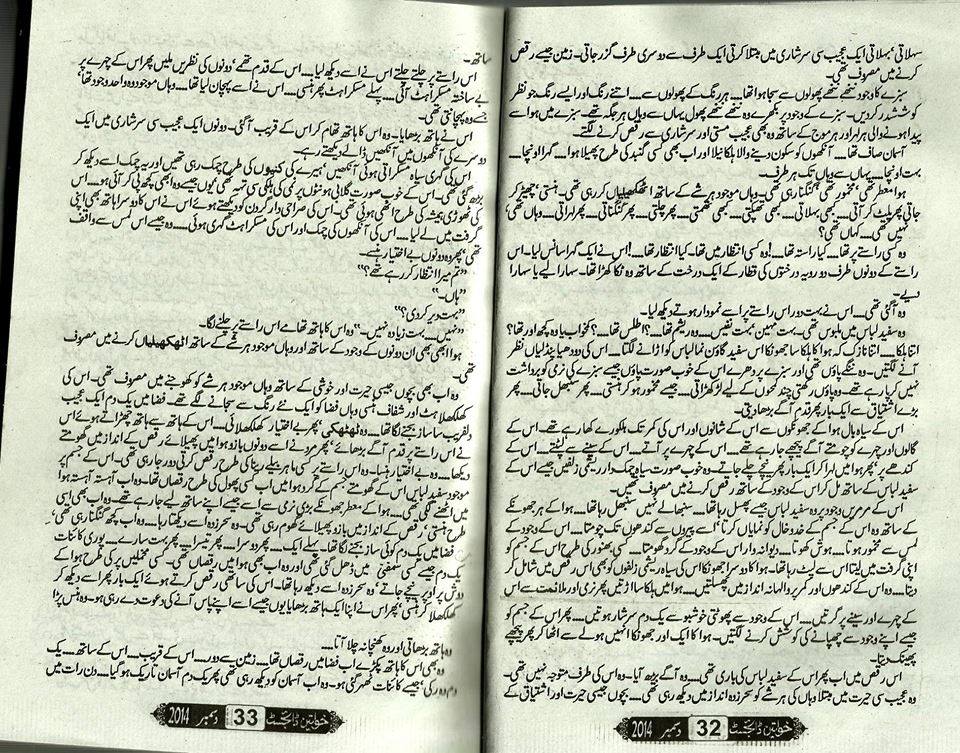 سہلاتی، بہلاتی ایک عجیب سی سرشاری میں مبتلا کرتی ایک طرف سے دوسری طرف گزر جاتی۔ زمین جیسے رقص
کرنے میں مصروف تھی۔
سبزے کا وجود ننھے ننھے پھولوں سے سجا ہوا تھا.... ہر رنگ کے پھولوں سے.... اتنے رنگ اور ایسے رنگ جو نظر
کو ششدر کر دیں۔ سبزے کے وجود پر بکھرے وہ ننھے ننھے پھول یہاں سے وہاں ہر جگہ تھے۔ سبزے میں ہوا سے
پیدا ہونے والی ہر لہر اور ہر موج کے ساتھ وہ بھی عجیب مستی اور سرشاری سے رقص کرنے لگتے۔
آسمان صاف تھا.... آنکھوں کو سکون دینے والا ہلکا نیلا اور اب بھی کسی گنبد کی طرح پھیلا ہوا.... گہرا اونچا....
بہت اونچا.... یہاں سے وہاں تک ہر طرف۔
ہوا معطر تھی، مخمور تھی، گنگنا رہی تھی۔ وہاں موجود ہر شے کے ساتھ اٹھکھیلیاں کر رہی تھی۔ ہنستی، چھیڑ کر
جاتی پھر پلٹ کر آتی.... کبھی بہلاتی.... کبھی تھپکتی.... کبھی تھمتی.... پھر چلتی.... پھر گنگناتی.... پھر لہراتی.... وہاں تھی،
نہیں تھی.... کہاں تھی؟
وہ کسی راستے پر تھا.... کیا راستہ تھا....! وہ کسی انتظار میں تھا۔ کیا انتظار تھا....! اس نے ایک گہرا سانس لیا۔ اس
راستے کے دونوں طرف دو رویہ درختوں کی قطار کے ایک درخت کے ساتھ وہ ٹکا کھڑا تھا۔ سہارا لیے یا سہارا
دیے۔
وہ آ گئی تھی.... اس نے بہت دور اس راستے پر اسے نمودار ہوتے دیکھ لیا۔
وہ سفید لباس میں ملبوس تھی۔ بہت مہین بہت نفیس.... وہ ریشم تھا....؟ اطلس تھا....؟ کمخواب یا وہ کچھ اور تھا؟
اتنا ہلکا.... اتنا نازک کہ ہوا کا ہلکا سا جھونکا اس سفید گاؤن نما لباس کو اڑانے لگتا.... اس کی دودھیا پنڈلیاں نظر
آنے لگتیں۔ وہ ننگے پاؤں تھی اور سبزے پر دھرے اس کے خوب صورت پاؤں جیسے سبزے کی نرمی کو برداشت
نہیں کر پا رہے تھے۔ وہ پاؤں رکھتی چند لمحوں کے لیے لڑکھڑاتی.... جیسے مخمور ہو کر ہنستی.... پھر سنبھل جاتی.... پھر
بڑے اشتیاق سے ایک بار پھر قدم آگے بڑھا دیتی۔
اس کے سیاہ بال ہوا کے جھونکوں سے اس کے شانوں اور اس کی کمر تک ہلکورے کھا رہے تھے۔ اس کے
گالوں اور چہرے کو چومتے آگے پیچھے جا رہے تھے.... اس کے چہرے پر آتے.... اس کے سینے سے لپٹتے.... اس کے
کندھے پر، پھر ہوا میں لہرا کر ایک بار پھر نیچے چلے جاتے۔ وہ خوب صورت سیاہ چمکدار ریشمی زلفیں جیسے اس کے
سفید لباس کے ساتھ مل کر اس کے وجود کے ساتھ رقص کرنے میں مصروف تھیں۔
اس کے مرمریں وجود پر وہ سفید لباس جیسے پھسل رہا تھا.... سنبھالے نہیں سنبھل رہا تھا.... ہوا کے ہر جھونکے
کے ساتھ وہ اس کے جسم کے خدوخال کو نمایاں کرتا، اسے پیروں سے کندھوں تک چومتا.... اس کے وجود کے
لمس سے مخمور ہوتا.... ہوش کھوتا.... دیوانہ وار اس کے وجود کے گرد گھومتا.... کسی بھنور کی طرح اس کے جسم کو
اپنی گرفت میں لیتا اس سے لپٹ رہا تھا۔ ہوا کا دوسرا جھونکا اس کی سیاہ ریشمی زلفوں کو بھی اس رقص میں شامل کر
دیتا.... وہ اس کے کندھوں اور کمر پر والہانہ انداز میں پھسلتیں.... ہوا میں ہلکا سا اڑتیں پھر نرمی اور ملائمت سے اس
کے چہرے اور سینے پر گرتیں.... اس کے وجود سے پھوٹتی خوشبو سے یک دم سرشار ہوتیں.... پھر اس کے جسم کو
جیسے اپنے وجود سے چھپانے کی کوشش کرنے لگتیں۔ ہوا کا ایک اور جھونکا انہیں ہولے سے اٹھا کر پھر پیچھے
پھینک دیتا۔
اس رقص میں اب پھر اس کے سفید لباس کی باری تھی.... وہ آگے بڑھ آیا۔ وہ اس کی طرف متوجہ نہیں تھی۔
وہ عجیب سی حیرت میں مبتلا وہاں کی ہر شے کو سحر زدہ انداز میں دیکھ رہی تھی.... بچوں جیسی حیرت اور اشتیاق کے
خواتین ڈائجسٹ 32 دسمبر 2014
ساتھ۔
اس راستے پر چلتے چلتے اس نے اسے دیکھ لیا.... اس کے قدم تھمے، دونوں کی نظریں ملیں پھر اس کے چہرے پر
بے ساختہ مسکراہٹ آئی.... پہلے مسکراہٹ پھر ہنسی.... اس نے اسے پہچان لیا تھا.... وہاں موجود وہ واحد وجود تھا،
جسے وہ پہچانتی تھی۔
اس نے ہاتھ بڑھایا۔ وہ اس کا ہاتھ تھام کر اس کے قریب آ گئی۔ دونوں ایک عجیب سی سرشاری میں ایک
دوسرے کی آنکھوں میں آنکھیں ڈالے دیکھتے رہے۔
اس کی گہری سیاہ مسکراتی ہوئی آنکھیں، ہیرے کی کنیوں کی طرح چمک رہی تھیں اور یہ چمک اسے دیکھ کر
بڑھ گئی تھی۔ اس کے خوب صورت گلابی ہونٹوں پر نمی کی ہلکی سی تہہ تھی یوں جیسے وہ ابھی کچھ پی کر آئی ہو.... اس
کی ٹھوڑی ہمیشہ کی طرح اٹھی ہوئی تھی۔ اس کی صراحی دار گردن کو دیکھتے ہوئے اس نے اس کا دوسرا ہاتھ بھی اپنی
گرفت میں لے لیا.... اس کی آنکھوں کی چمک اور اس کی مسکراہٹ گہری ہوئی.... وہ جیسے اس لمس سے واقف
تھی، پھر وہ دونوں بے اختیار ہنسے۔
”تم میرا انتظار کر رہے تھے؟“
”ہاں۔“
”بہت دیر کر دی؟“
”نہیں.... بہت زیادہ نہیں۔“ وہ اس کا ہاتھ تھامے اس راستے پر چلنے لگا۔
ہوا ابھی بھی ان دونوں کے وجود کے ساتھ اور وہاں موجود ہر شے کے ساتھ اٹھکھیلیاں کرنے میں مصروف
تھی۔
وہ اب بھی بچوں جیسی حیرت اور خوشی کے ساتھ وہاں موجود ہر شے کو کھوجنے میں مصروف تھی۔ اس کی
کھلکھلاہٹ اور شفاف ہنسی وہاں فضا کو ایک نئے رنگ سے سجانے لگے تھے۔ فضا میں یک دم ایک عجیب
دلفریب سا ساز بجنے لگا تھا.... وہ ٹھٹھکی، پھر بے اختیار کھلکھلائی.... اس کے ہاتھ سے ہاتھ چھڑاتے ہوئے اس
نے اس راستے پر قدم آگے بڑھائے، پھر مرد نے اسے دونوں بازو ہوا میں پھیلائے رقص کے انداز میں گھومتے
دیکھا.... وہ بے اختیار ہنسا.... وہ اس راستے پر کسی ماہر بیلے رینا کی طرح رقص کرتی دور جا رہی تھی۔ اس کے جسم پر
موجود سفید لباس اس کے گھومتے جسم کے گرد ہوا میں اب کسی پھول کی طرح رقصاں تھا۔ وہ اب آہستہ آہستہ ہوا
میں اٹھنے لگی تھی.... ہوا کے معطر جھونکے بڑی نرمی سے اسے جیسے اپنے ساتھ لیے جا رہے تھے۔ وہ اب بھی ایسی
طرح ہنستی، رقص کے انداز میں بازو پھیلائے گھوم رہی تھی۔ وہ سحر زدہ اسے دیکھتا رہا.... وہ اب کچھ گنگنا رہی تھی
فضا میں یک دم کوئی ساز بجنے لگا تھا.... پہلے ایک.... پھر دوسرا.... پھر تیسرا.... پھر بہت سارے.... پوری کائنات
یک دم جیسے کسی سمفنی میں ڈھل گئی تھی اور وہ اب بھی ہوا میں رقصاں تھی۔ کسی مخملیں پر کی طرح ہوا کے
دوش پر اوپر نیچے جاتے، وہ سحر زدہ اسے دیکھ رہا تھا۔ اس کی ساتھی رقص کرتے ہوئے ایک بار پھر اسے دیکھ کر
کھلکھلا کر ہنسی، پھر اس نے اپنا ایک ہاتھ بڑھایا یوں جیسے اسے اپنے پاس آنے کی دعوت دے رہی ہو۔ وہ ہنس پڑا
وہ ہاتھ بڑھاتی اور وہ کھنچا نہ چلا آتا....
وہ بھی اس کا ہاتھ پکڑے اب فضا میں رقصاں تھا.... زمین سے دور.... اس کے قریب.... اس کے ساتھ.... یک
دم وہ رکی، جیسے کائنات ٹھہر گئی ہو۔ وہ اب آسمان کو دیکھ رہی تھی پھر یک دم آسمان تاریک ہو گیا.... دن رات میں
خواتین ڈائجسٹ 33 دسمبر 2014